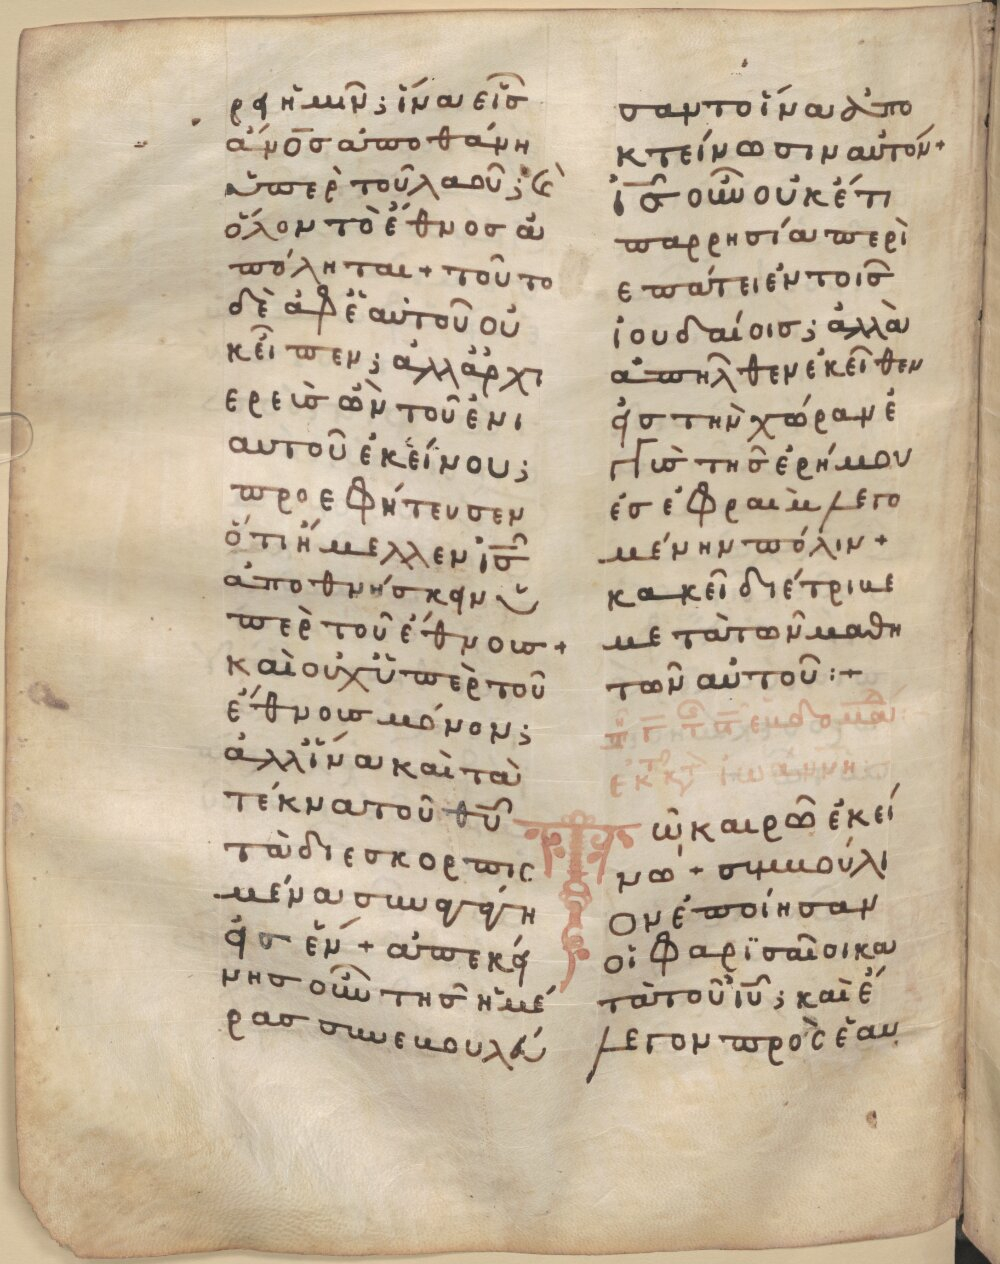 ρει ἡμῖν; ἵνα εἷς
ἄν̅ο̅ς ἀποθάνη
ὑπὲρ τοῦ λαοῦ; (καὶ)
ὅλον τὸ ἔθνος ἀ
πόληται + τοῦτο
δὲ ἀφ ἑαυτοῦ οὐ
κ εἶπεν; ἀλλ ἀρχι
ερεὺς ὢν τοῦ ἐνι
αυτοῦ ἐκείνου;
προεφήτευσεν
ὅτι ἤμελλεν ι̅ς̅
ἀποθνήσκειν ὑ
πὲρ τοῦ ἔθνους +
καὶ οὐχ ὑπὲρ τοῦ
ἔθνους μόνον;
ἀλλ ἵνα καὶ τὰ
τέκνα τοῦ θ̅υ̅
τὰ διεσκορπισ
μένα συναγάγη
εἰς ἕν + ἀπ ἐκεί
νης οὖν τῆς ἡμέ
ρας συνεβουλεύ
σαντο ἵνα ἀπο
κτείνωσιν αὐτόν +
ι̅ς̅ οὖν οὐκ ἔτι
παρρησία περὶ
επάτει ἐν τοῖς
ἰουδαίοις; ἀλλὰ
ἀπῆλθεν ἐκεῖθεν
εἰς τὴν χώραν ἐ
γγὺς τῆς ἐρήμου
εἰς ἐφραὶμ λεγο
μένην πόλιν +
κακεῖ διέτριβε
μετὰ τῶν μαθη
τῶν αὐτοῦ :+
ἐβδομάδ
ἐκ τοῦ κατὰ ἰωάννη
Τῶ καιρῶ ἐκεί
νω + συμβούλι
ον ἐποίησαν
οἱ φαρϊσαῖοι κα
τὰ τοῦ ι̅υ̅; καὶ ἔ
λεγον πρὸς ἑαυ